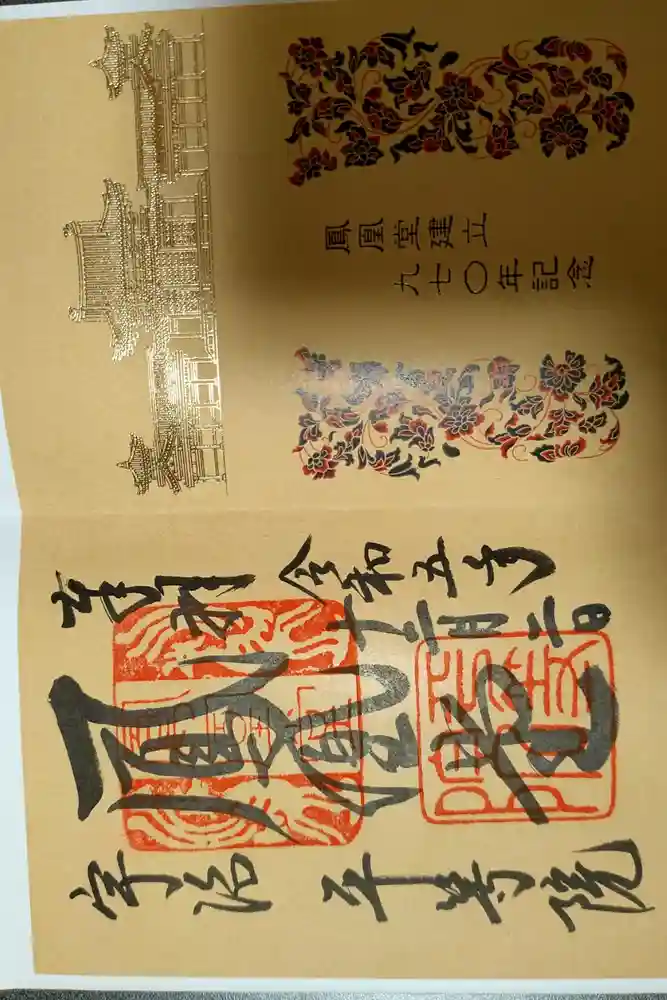 鳳凰堂建立
九七〇年記念
奉拝
令和五年
十二月二日
鳳凰堂
宇治 平等院